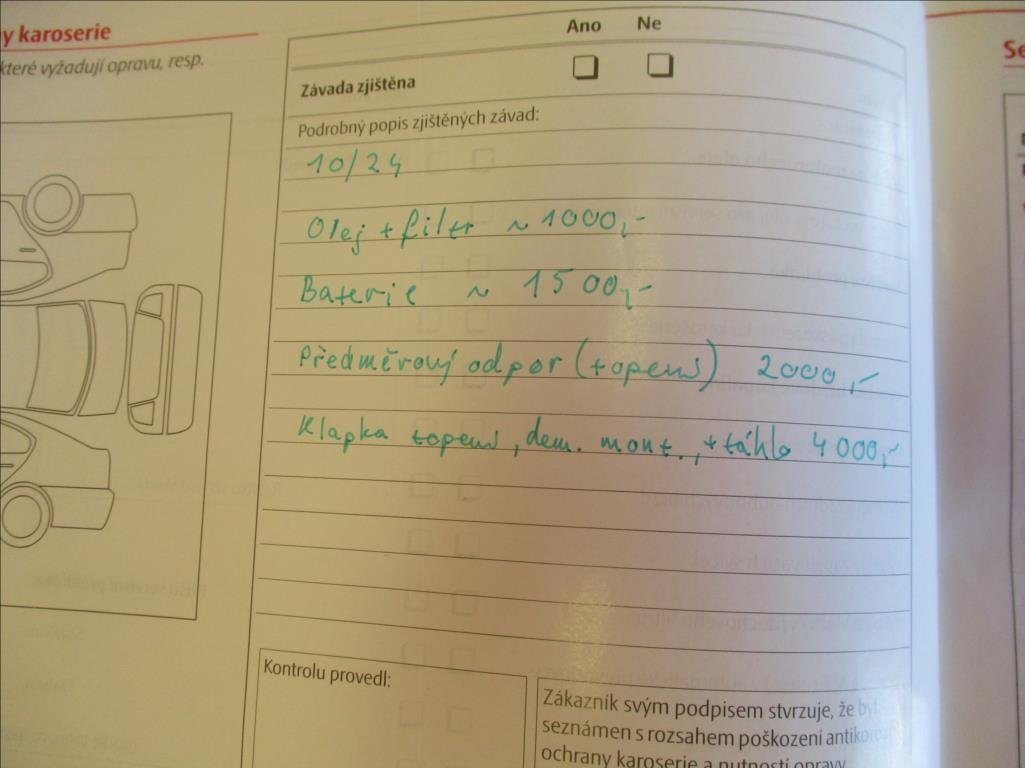 y karoserie
které vyžadují opravu, resp.
Ano Ne
Závada zjištěna
Podrobný popis zjištěných závad:
10/24
Olej + filtr ~ 1000,-
Baterie ~ 1500,-
Předměrový odpor (topení) 2000,-
Klapka topení, dem. mont., + táhlo 4000,-
Kontrolu provedl:
Zákazník svým podpisem stvrzuje, že byl
seznámen s rozsahem poškození antikoro
ochrany karoserie a nutností opravy
Se